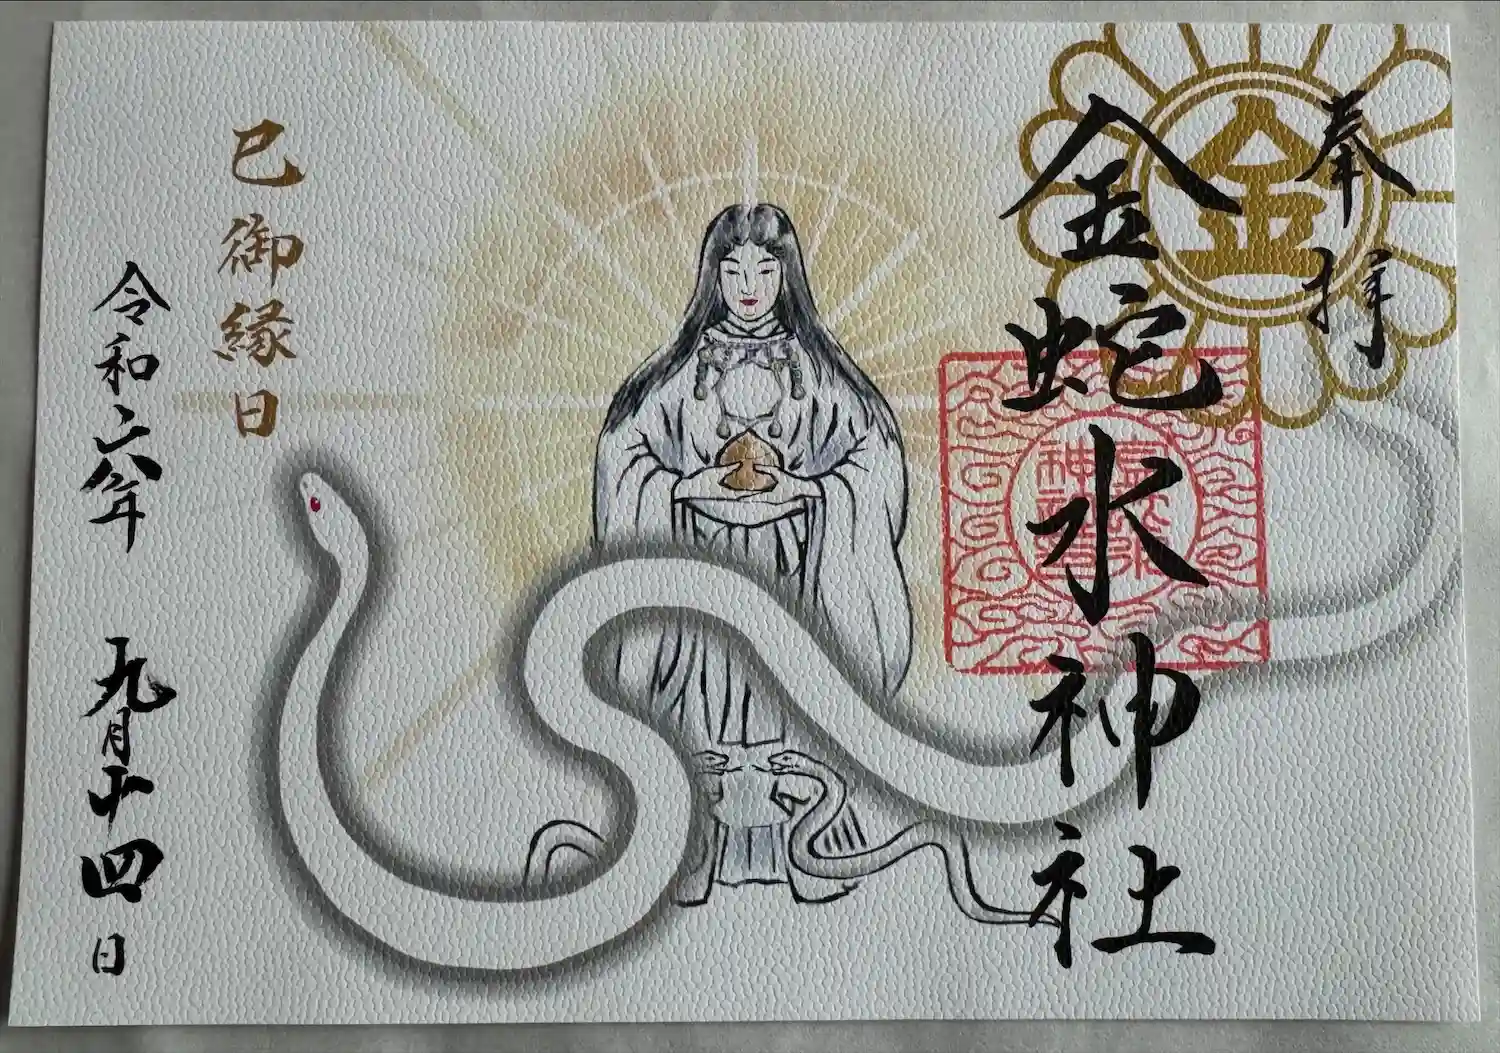 奉拝
金
金蛇水神社
巳御縁日
令和六年 九月十四日